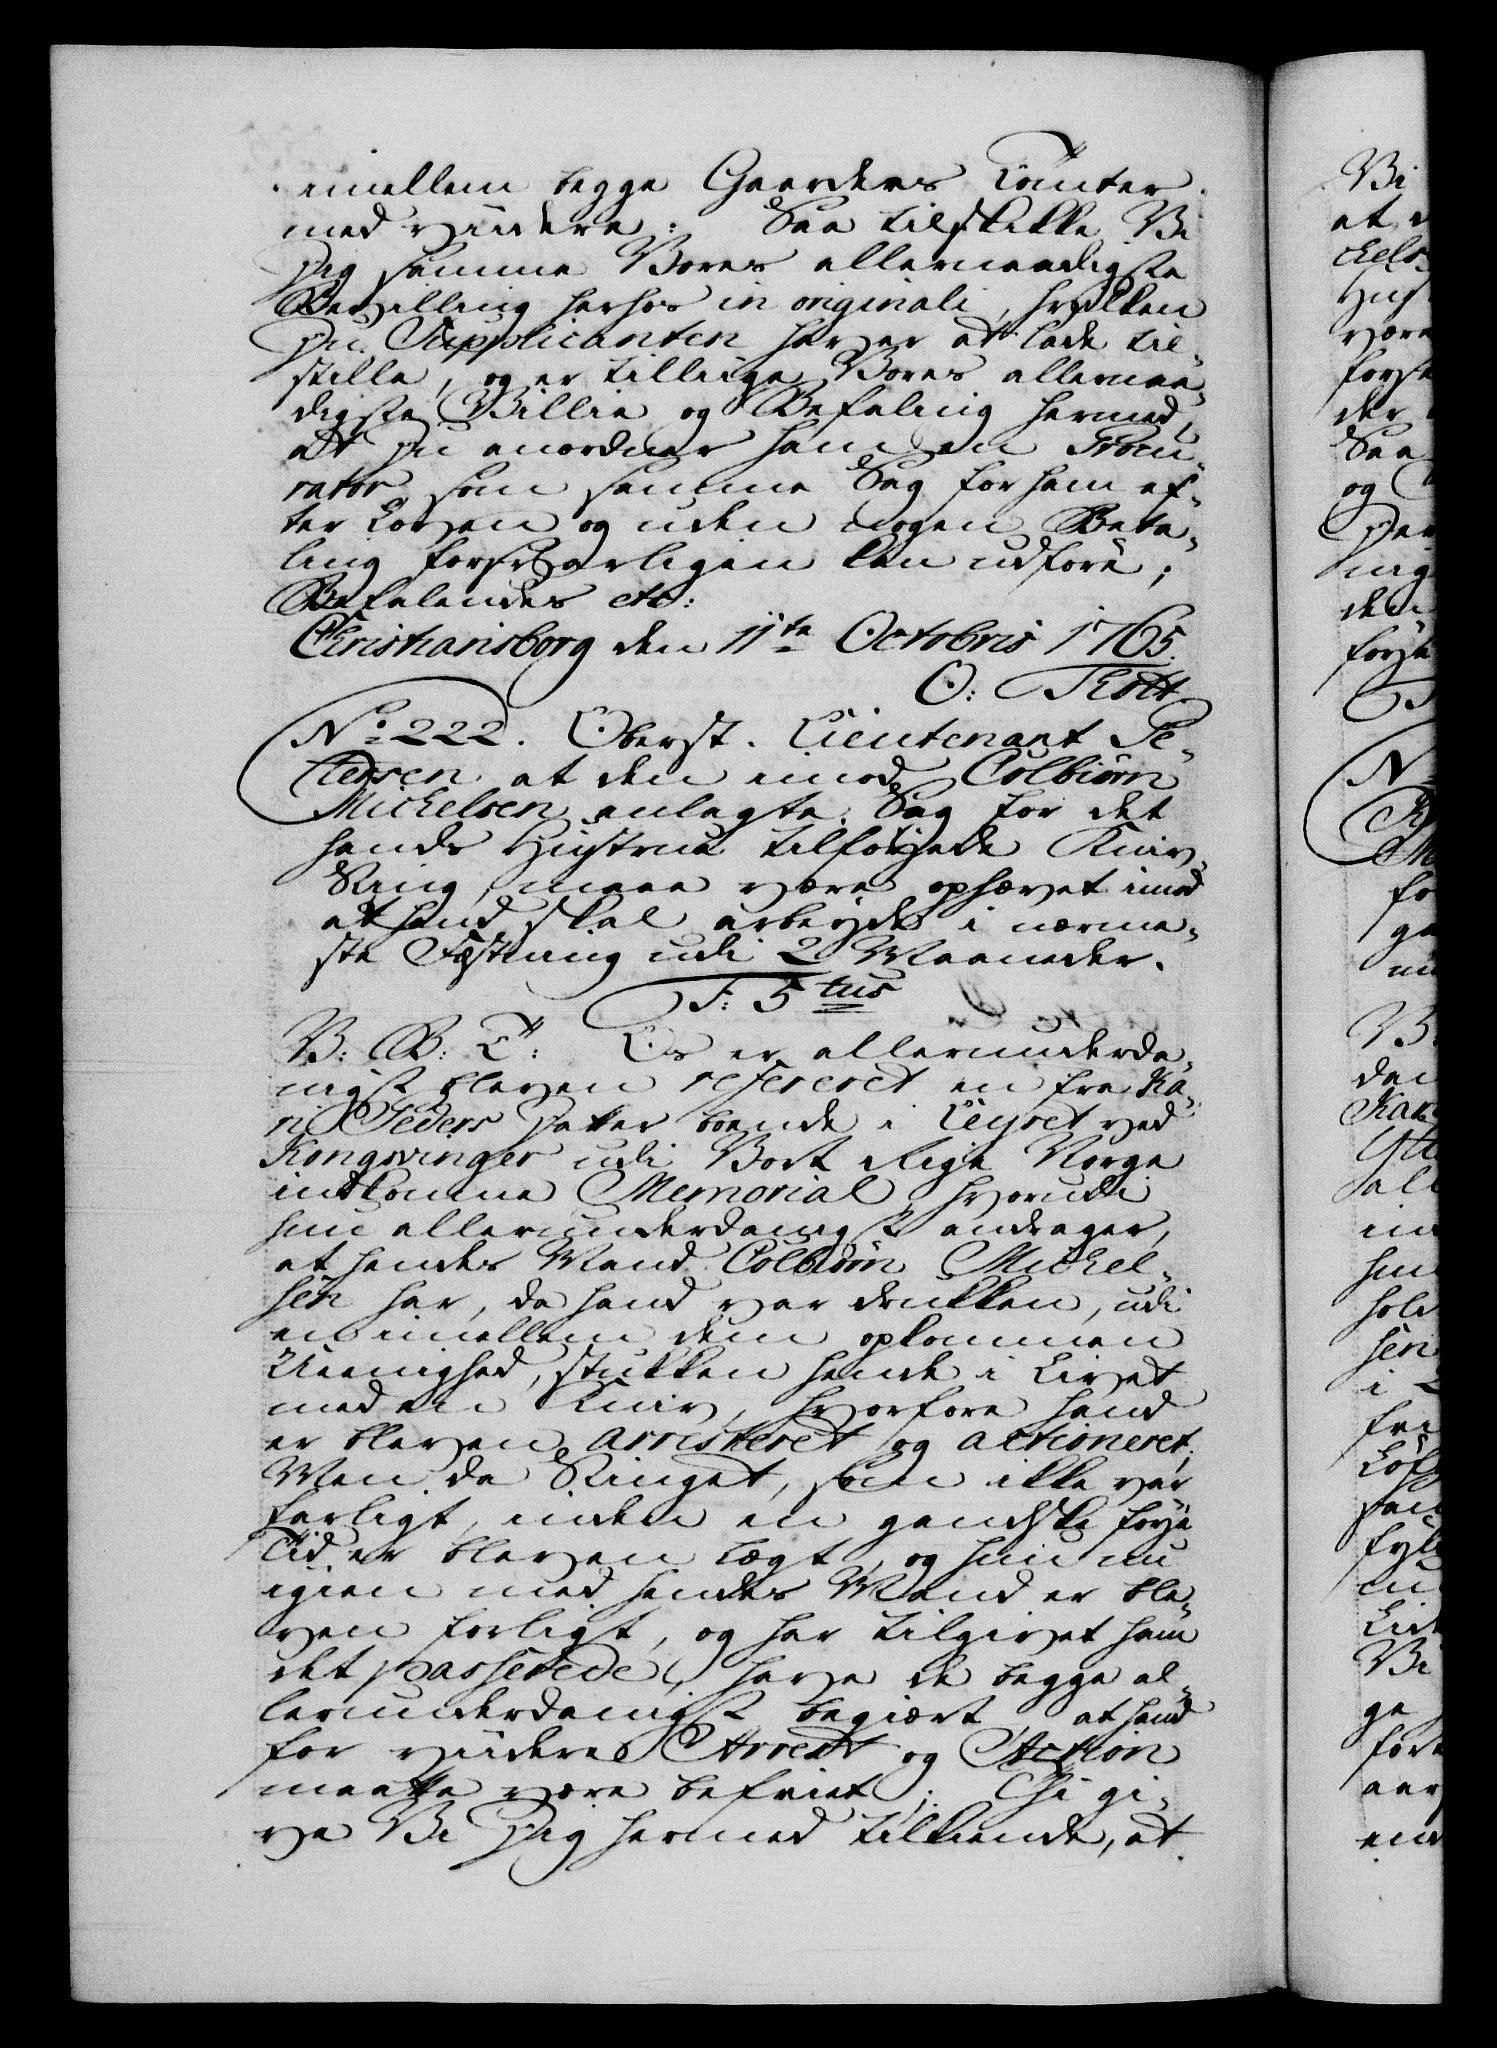 imellem begge Gaardens Tomter
med viidere: Saa tilskikke Vi
Dig samme Vores allernaadigste
Bevilling herhos in originali, hvilken
Du Supplicanten haver at lade til-
stille, og er tilliige Vores allernaa-
digste Villie og Befaling hermed,
at Du anordner ham en Procu-
rator som samme Sag for ham ef-
ter Loven og uden nogen Beta-
ling forsvarligen kan udføre;
Befalendes etc:
Christiansborg den 11te Octobris 1765.
O: Thott
No 222. Oberst. Lieutenant Pe-
tersen at den imod Colbiørn
Michelsen anlagte Sag for det
hands Hustrue tilføyede Kniv-
Sting, maae være ophævet imod
at hand skal arbeyde i nærme-
ste Fæstning udi 2 Maaneder.
F: 5tus
V: G: T: Os er allerunderda-
nigst bleven refereret en fra Ka-
ri Peders Datter boende i Leyret ved
Kongsvinger udi Vort Rige Norge
indkomne Memorial, hvorudi
hun allerunderdanigst andrager,
at hendes Mand Colbiørn Michel-
sen har, da hand var drukken, udi
en imellem dem opkommen
Ueenighed, stukken hende i Livet
med en Kniv, hvorfore hand
er bleven arresteret og actioneret;
Men da Stinget, som ikke var
farligt, inden en gandske føye
Tid er bleven lægt, og hun nu
igien med hendes Mand er ble-
ven forligt, og har tilgivet ham
det passerede, have de begge al-
lerunderdanigst begiært, at hand
for viidere Arrest og Action
maatte være befriet; Thi gi-
ve Vi Dig hermed tilkiende, at